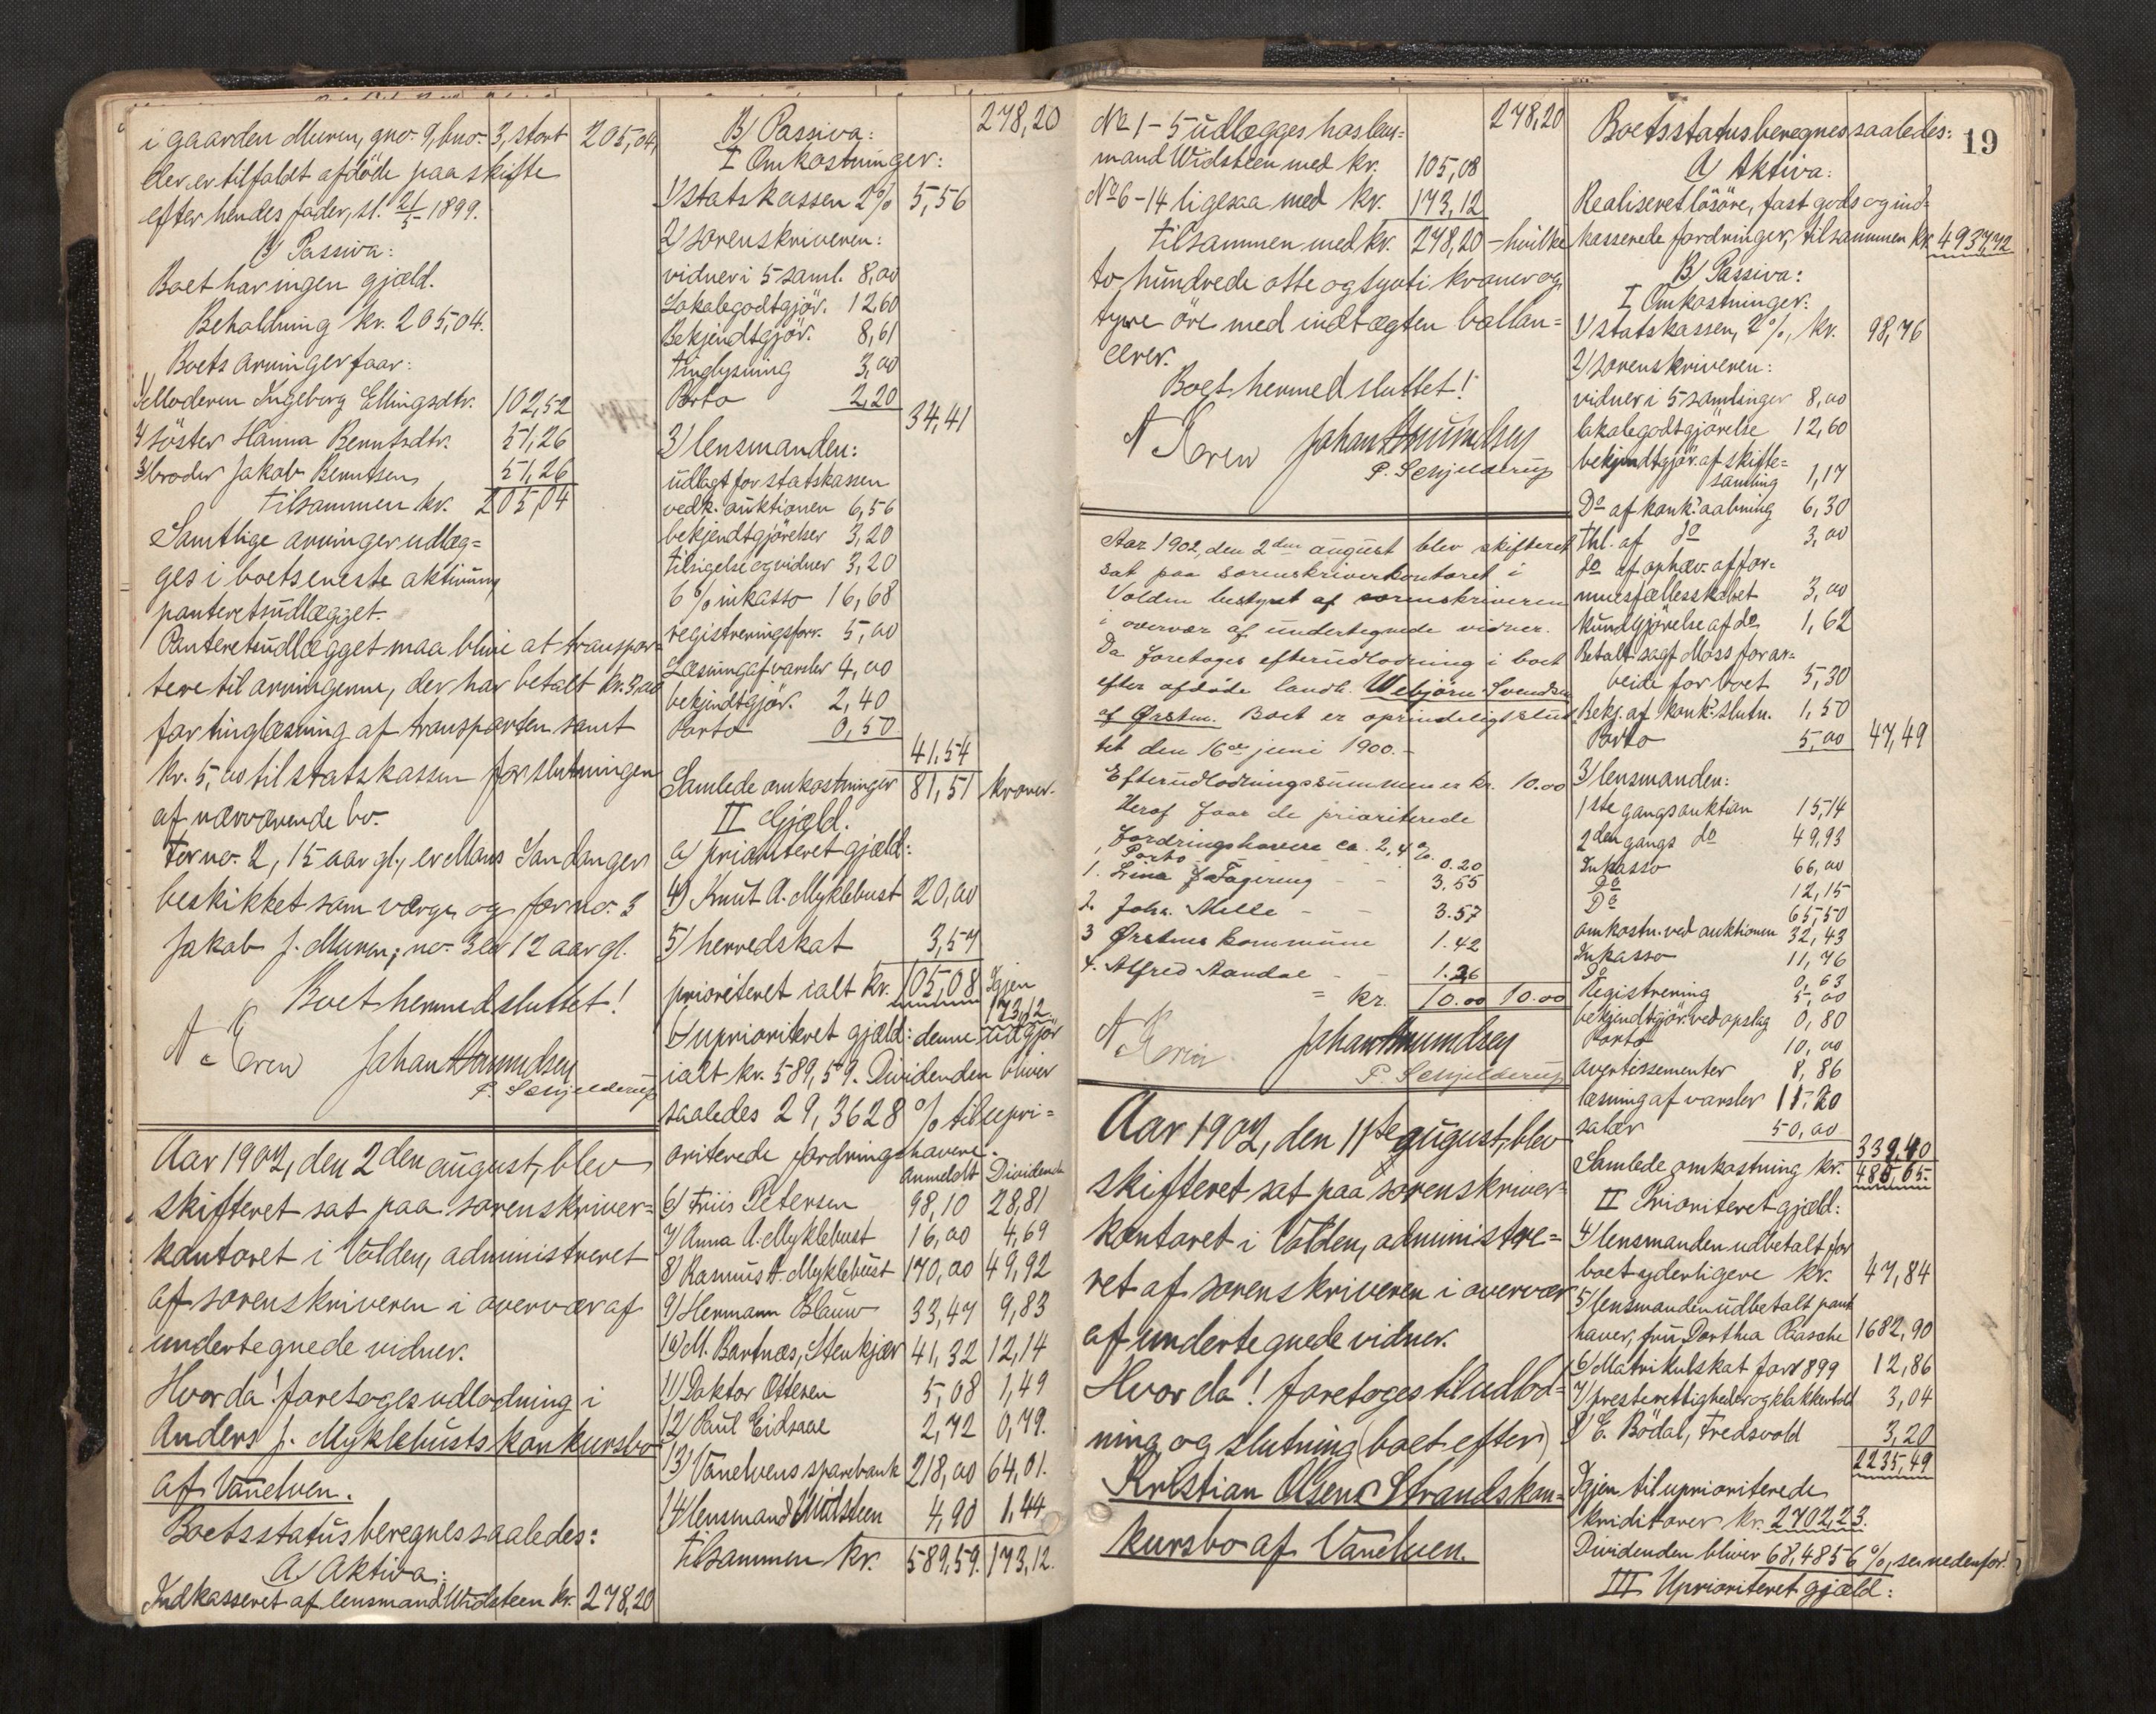 i gaarden Muren, gno. 9, bno. 3, stort 205,04,
der er tilfaldt afdöde paa skifte
efter hendes fader, sl. 21/5 1899.
B/ Passiva:
Boet har ingen gjæld.
Beholdning kr. 205,04.
Boets arvinger faar:
1/ Moderen Ingeborg Ellingsdtr. 102,52
2/ söster Hanna Berntsdtr. 51,26
3/ broder Jakob Berntsen 51,26
tilsammen kr. 205,04
Samtlige arvinger udlæg=
ges i boets eneste aktivum
panteretsudlægget.
Panteretsudlægget maa blive at transpor=
tere til arvingerne, der har betalt kr. 3,00
for tinglæsning af transporten samt
kr. 5,00 til statskassen for slutningen
af nærværende bo.
For no. 2, 15 aar gl., er Mons Sandanger
beskikket som værge, og for no. 3
Jakob J. Muren; no. 3 er 12 aar gl.
Boet hermed sluttet!
Johan Amundsen
P. Schjelderup
Aar 1902, den 2den august, blev
skifteret sat paa sorenskriver=
kontoret i Volden, administreret
af sorenskriveren i overvær af
undertegnede vidner.
Hvor da! foretoges udlodning i
Anders J. Myklebusts konkursbo
af Vanelven.
Boets status beregnes saaledes:
A/ Aktiva:
Indkasseret af lensmand Widsteen kr. 278,20
278,20
B/ Passiva:
I Omkostninger:
1/ statskassen 2% 5,56
2/ sorenskriveren:
vidner i 5 saml. 8,00
Lokalegodtgjör. 12,60
Bekjendtgjör. 8,61
tinglysning 3,00
Porto 2,20
34,41
3/ lensmanden:
udlagt for statskassen
vedk. auktionen 6,56
bekjendtgjörelser 3,20
tilsigelse og vidner 3,20
6% inkasso 16,68
registreringsforr. 5,00
Læsning af varsler 4,00
bekjendtgjör. 2,40
Porto 0,50
41,54
Samlede omkostninger 81,51 kroner.
II Gjæld.
a/ prioriteret gjæld:
4/ Knut A. Myklebust 20,00
5/ herredskat 3,57
prioriteret ialt kr. 105,08 Igjen
173,12
b/ uprioriteret gjæld: denne udgjör
ialt kr. 589,59. Dividenden bliver
saaledes 29,3628 % til upri=
oriterede fordringshavere.
Anmeldt Dividende
6/ Friis Petersen 98,10 28,81
7/ Anna A. Myklebust 16,00 4,69
8/ Rasmus A. Myklebust 170,00 49,92
9/ Hermann Blauw 33,47 9,83
10/ M. Bartnæs, Stenkjær 41,32 12,14
11/ Doktor Otteren 5,08 1,49
12/ Paul Eidsaae 2,72 0,79.
13/ Vanelvens sparebank 218,00 64,01.
14/ lensmand Widsteen 4,90 1,44
tilsammen kr. 589,59. 173,12.
No 1-5 udlægges hos lens= 278,20
mand Widsteen med kr. 105,08
No 6-14 ligesaa med kr. 173,12
tilsammen med kr. 278,20 - hvilke
to hundrede otte og sytti kroner og
tyve öre med indtægten ballan=
cerer.
Boet hermed sluttet!
Johan Amundsen
P. Schjelderup
Aar 1902, den 2den august blev skifteret
sat paa sorenskriverkontoret i
Volden bestyret af sorenskriveren
i overvær af undertegnede vidner.
Da foretoges efterudlodning i boet
efter afdöde landh. Webjörn Svendsen
af Ørsten. Boet er oprindeligt slut
tet den 16de juni 1900.-
Efterudlodningssummen er kr. 10.00
Heraf faar de prioriterede
fordringshavere ca. 2,4 %.
Porto 0.20
1. Lina J. Fagering - - 3.55
2. Johs. Melle - - 3.57
3 Ørstens kommune 1.42
4. Alfred Aandal - - 1.26
= kr. 10.00 10.00
Johan Amundsen
P. Schjelderup
Aar 1902, den 11te august, blev
skifteret sat paa sorenskriver=
kontoret i Volden, administre=
ret af sorenskriveren i overvær
af undertegnede vidner.
Hvor da! foretoges til udlod=
ning og slutning (boet efter)
Kristian Olsens Strands kon=
kursbo af Vanelven.
19
Boets status beregnes saaledes:
A/ Aktiva:
Realiseret lösöre, fast gods og ind=
kasserede fordringer, tilsammen kr. 4937,72
B/ Passiva:
I Omkostninger:
1/ statskassen, 2%, kr. 98,76
2/ sorenskriveren:
vidner i 5 samlinger 8,00
lokalegodtgjörelse 12,60
bekjendtgjör. af skifte=
samling 1,17
Do af konk. aabning 6,30
Thl. af do 3,00
do af ophæv. af for=
muesfællesskabet 3,00
kundgjörelse af do 1,62
Betalt sagf. Moss for ar=
beide for boet 5,30
Bekj. af konk. slutn. 1,50
Porto 5,00 47,49
3/ lensmanden:
1ste gangs auktion 15,14
2den gangs do 49,93
Inkasso 66,00
Do 12,15
Do 65,50
omkostn. ved auktionen 32,43
Inkasso 11,76
Do 0,63
Registrering 5,00
bekjendtgjör. ved opslag 0,80
Porto 10,00
Avertissementer 8,86
læsning af varsler 11,20
salær 50,00
339,40
Samlede omkostning kr. 485,65.
II Prioriteret gjæld:
4/ lensmanden udbetalt for
boet yderligere kr. 47,84
5/ lensmanden udbetalt pant
haver, fru Dorthea Raasche 1682,90
6/ Matrikulskat for 1899 12,86
7/ presterettigheder og klokkertold 3,04
8/ E. Bödal, Fredsvold 3,20
2235,49
Igjen til uprioriterede
kriditorer kr. 2702,23.
Dividenden bliver 68,4856 %, se nedenfor!
III Uprioriteret gjæld: